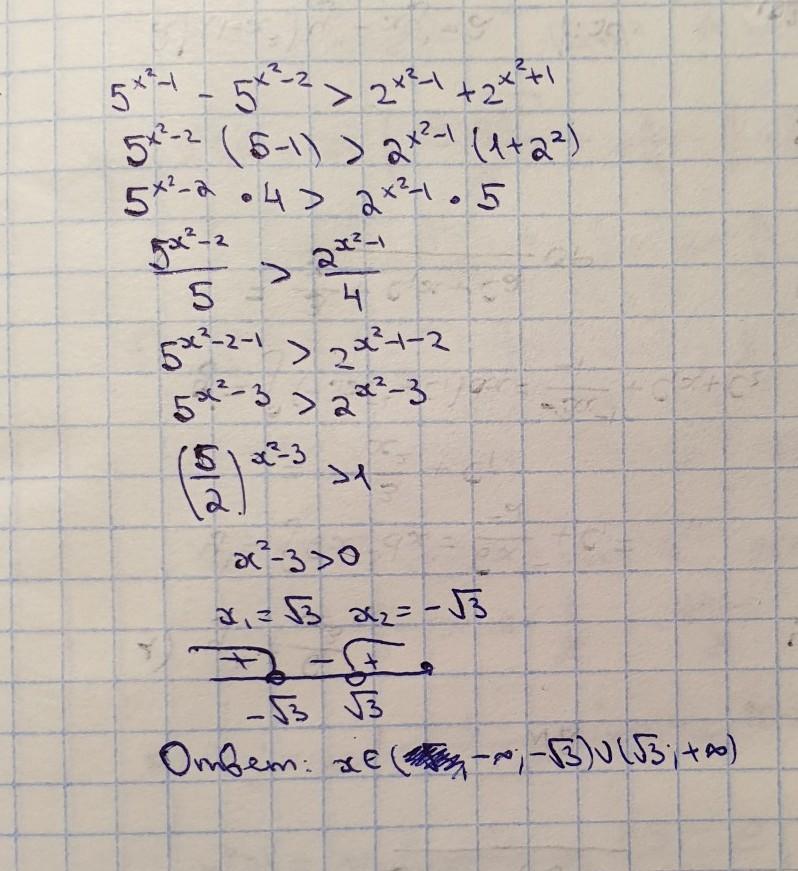 5^{x²-1} - 5^{x²-2} > 2^{x²-1} + 2^{x²+1}
5^{x²-2} (5-1) > 2^{x²-1} (1+2²)
5^{x²-2} · 4 > 2^{x²-1} · 5
5^{x²-2}/5 > 2^{x²-1}/4
5^{x²-2-1} > 2^{x²-1-2}
5^{x²-3} > 2^{x²-3}
(5/2)^{x²-3} > 1
x²-3>0
x₁=√3 x₂=-√3
+ - +
-√3 √3
Ответ: x∈(-∞;-√3)∪(√3;+∞)